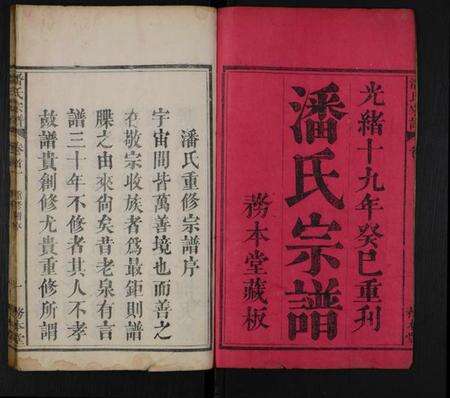 光緒十九年癸巳重刊
潘氏宗譜
務本堂藏板
潘氏重修宗譜序
宇宙間皆萬善境也而善之
在敬宗收族者為最鉅則譜
牒之由來尚矣昔老泉有言
譜三十年不修者其人不孝
故譜貴創修尤貴重修所謂
潘氏宗譜 卷首
一 務本堂